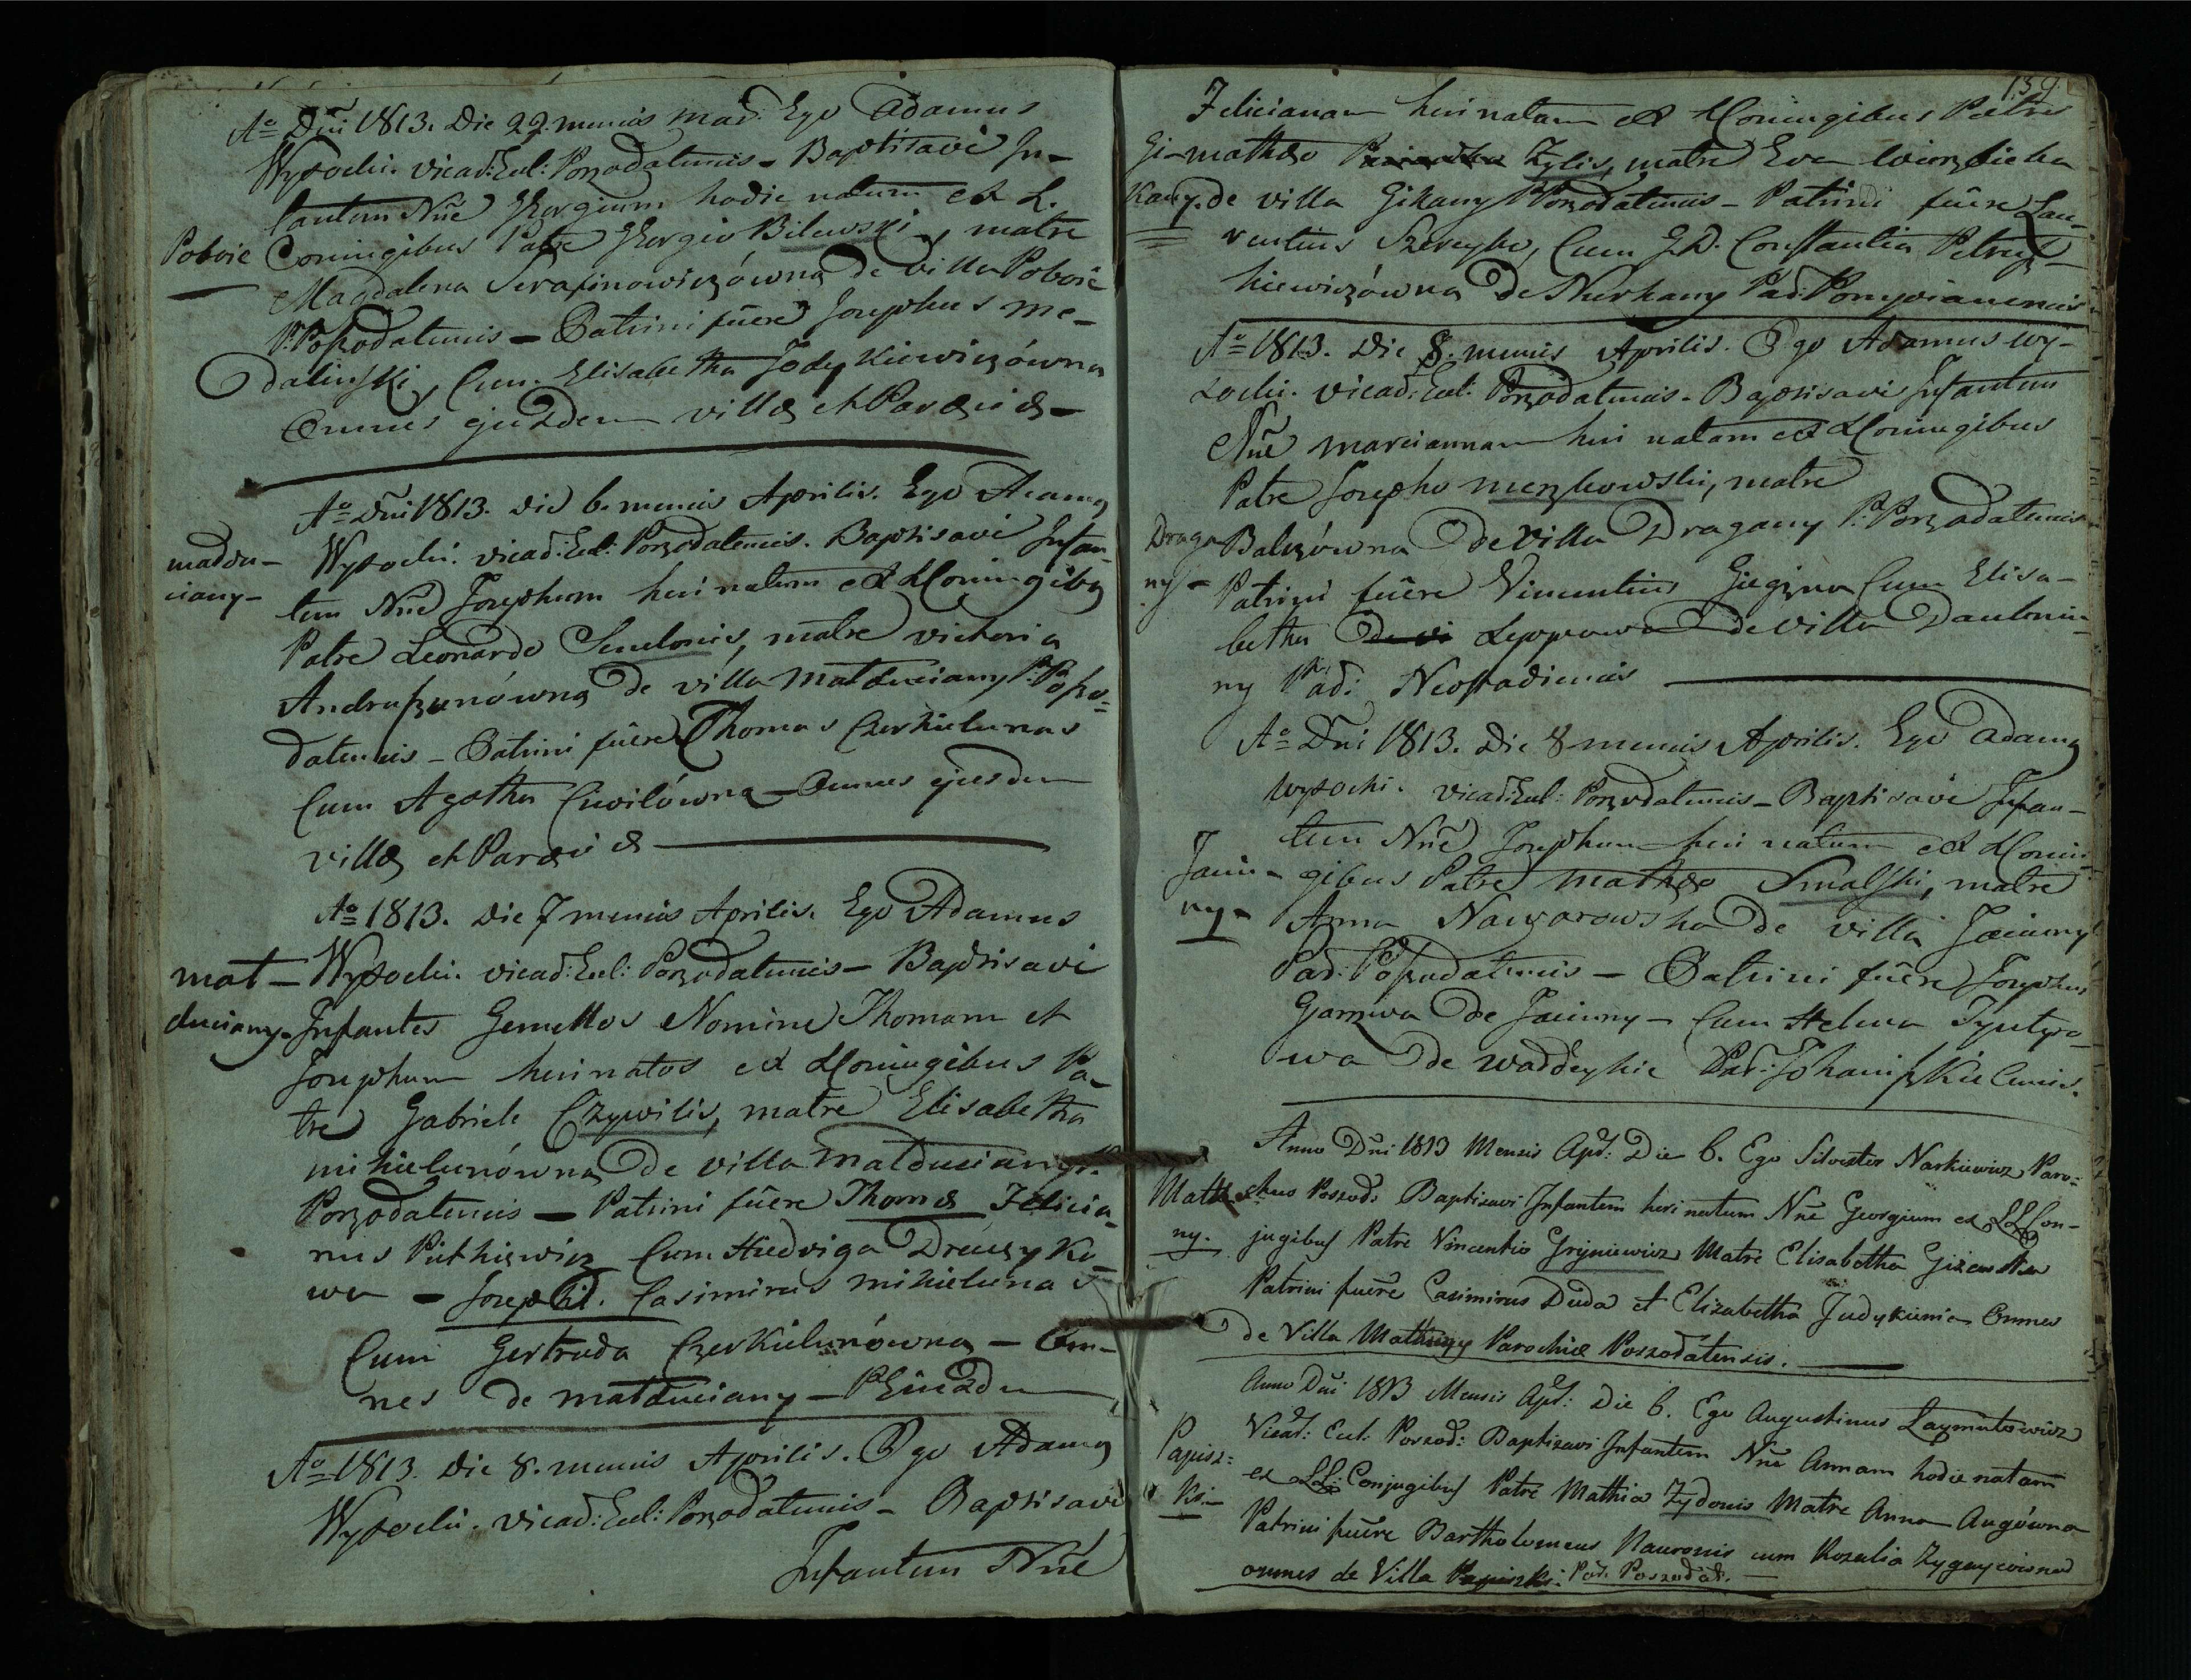 Ao Dñi 1813. Die 22. mensis mad: Ego Adamus
Wysocki. vicad: Eccl: Poszodatensis - Baptisavi In-
fantem Nñe Georgium hodie natum ex L.
Poboie Coniugibus Patre Georgio Bilewski, matre
Magdalena Serafinowiczówna de villa Poboie
P. Poszodatensis - Patrini fuere Josephus Me-
daliński, Cum Elisabetha Jodykiewiczówna
Omnes ejusdem villæ et Paræciæ -
Ao Dñi 1813. die 6. mensis Aprilis. Ego Adamus
maddu- Wysocki. vicad: Eccl: Poszodatensis. Baptisavi Infan-
ciany- tem Nñe Josephum heri natum ex LConiugibus
Patre Leonardo Senelonis, matre victoria
Andruszunówna de villa Malduciany P. Poszo-
datensis - Patrini fuere Thomas Czerkielunas
Cum Agatha Ciwilówna - Omnes ejusdem
villæ et Paræciæ
Ao 1813. Die 7 mensis Aprilis. Ego Adamus
mat- Wysocki. vicad: Eccl: Poszodatensis - Baptisavi
duciany- Infantes Gemellos Nomine Thomam et
Josephum heri natos ex LConiugibus Pa-
tre Gabriele Czywilis, matre Elisabetha
mikielunówna de villa Malduciany P.
Poszodatensis - Patrini fuere Thomæ Felicia-
nus Putkiewicz Cum Hedviga Drewzyko-
wa - Josephi. Casimirus mikielunas
Cum Gertruda Czerkielunówna - Om-
nes de malduciany - P. Ejusdem
Ao 1813. Die 8. mensis Aprilis. Ego Adamus
Wysocki. vicad: Eccl: Poszodatensis - Baptisavi
Infantem Nñe
139
Felicianam heri natam ex LConiugibus Patre
Gi- matheo Zylis, matre Eva Wierzbicka
kany. de villa Gikany P. Poszodatensis - Patrini fuere Lau-
rentius Szereyko, Cum G.D. Constantia Petrusz-
kiewiczówna de Nurkany Pad: Ponyvianensis
Ao 1813. Die 8. mensis Aprilis. Ego Adamus Wy-
socki. vicad: Eccl: Poszodatensis. Baptisavi Infantem
Nñe mariannam heri natam ex LConiugibus
Patre Josepho meszkowski, matre
Draga Balczówna de villa Dragany P: Poszodatensis
ny - Patrini fuere Vincentius Giegzna Cum Elisa-
betha de vi Lepowa de villa Daulonia-
ny Pad: Neostadiensis
Ao Dñi 1813. Die 8 mensis Aprilis. Ego Adamus
Wysocki. vicad: Eccl: Poszodatensis - Baptisavi Infan-
tem Nñe Josephum heri natum ex LConiu-
Jaini- gibus Patre matheo Smalski, matre
ny - Anna Nawgarowska de villa Jaininy
Pad: Poszodatensis - Patrini fuere Josephus
Garzwa de Jaininy - Cum Helena
wa de waddeykie Par: Johaniszkielensis.
Anno Dñi 1813 Mensis Apl: Die 6. Ego Silvester Narkiewicz Paro-
Math chus Poszod: Baptisavi Infantem heri natum Nñe Georgium ex LL Con-
ny. jugibus Patre Vincentio Gryniewicz Matre Elisabetha Gizewska
Patrini fuere Casimirus Duda et Elizabetha Judykunia Omnes
de Villa Mathuny Parochiæ Poszodatensis.
Anno Dñi 1813 Mensis Apl: Die 6. Ego Augustinus Laymintowicz
Vicar: Eccl. Poszod: Baptizavi Infantem Nñe Annam hodie natam
Papisz- ex LL: Conjugibus Patre Mathia Zydonis Matre Anna Augówna
ki- Patrini fuere Bartholomeus Nauronis cum Rozalia Zygaycovna
omnes de Villa Papiszki: Par. Poszodat.